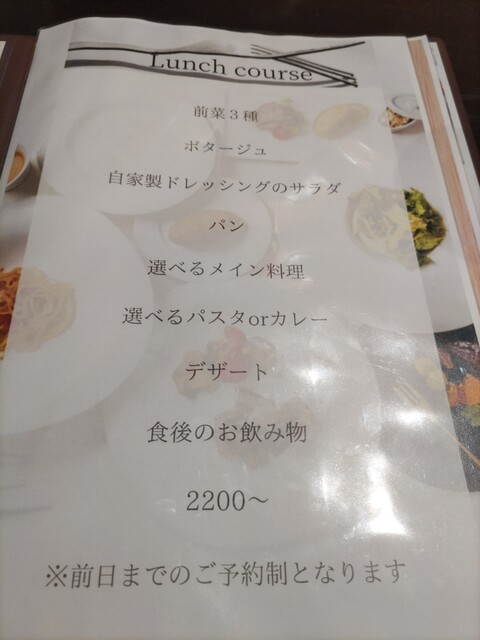 Lunch course
前菜３種
ポタージュ
自家製ドレッシングのサラダ
パン
選べるメイン料理
選べるパスタorカレー
デザート
食後のお飲み物
2200～
※前日までのご予約制となります